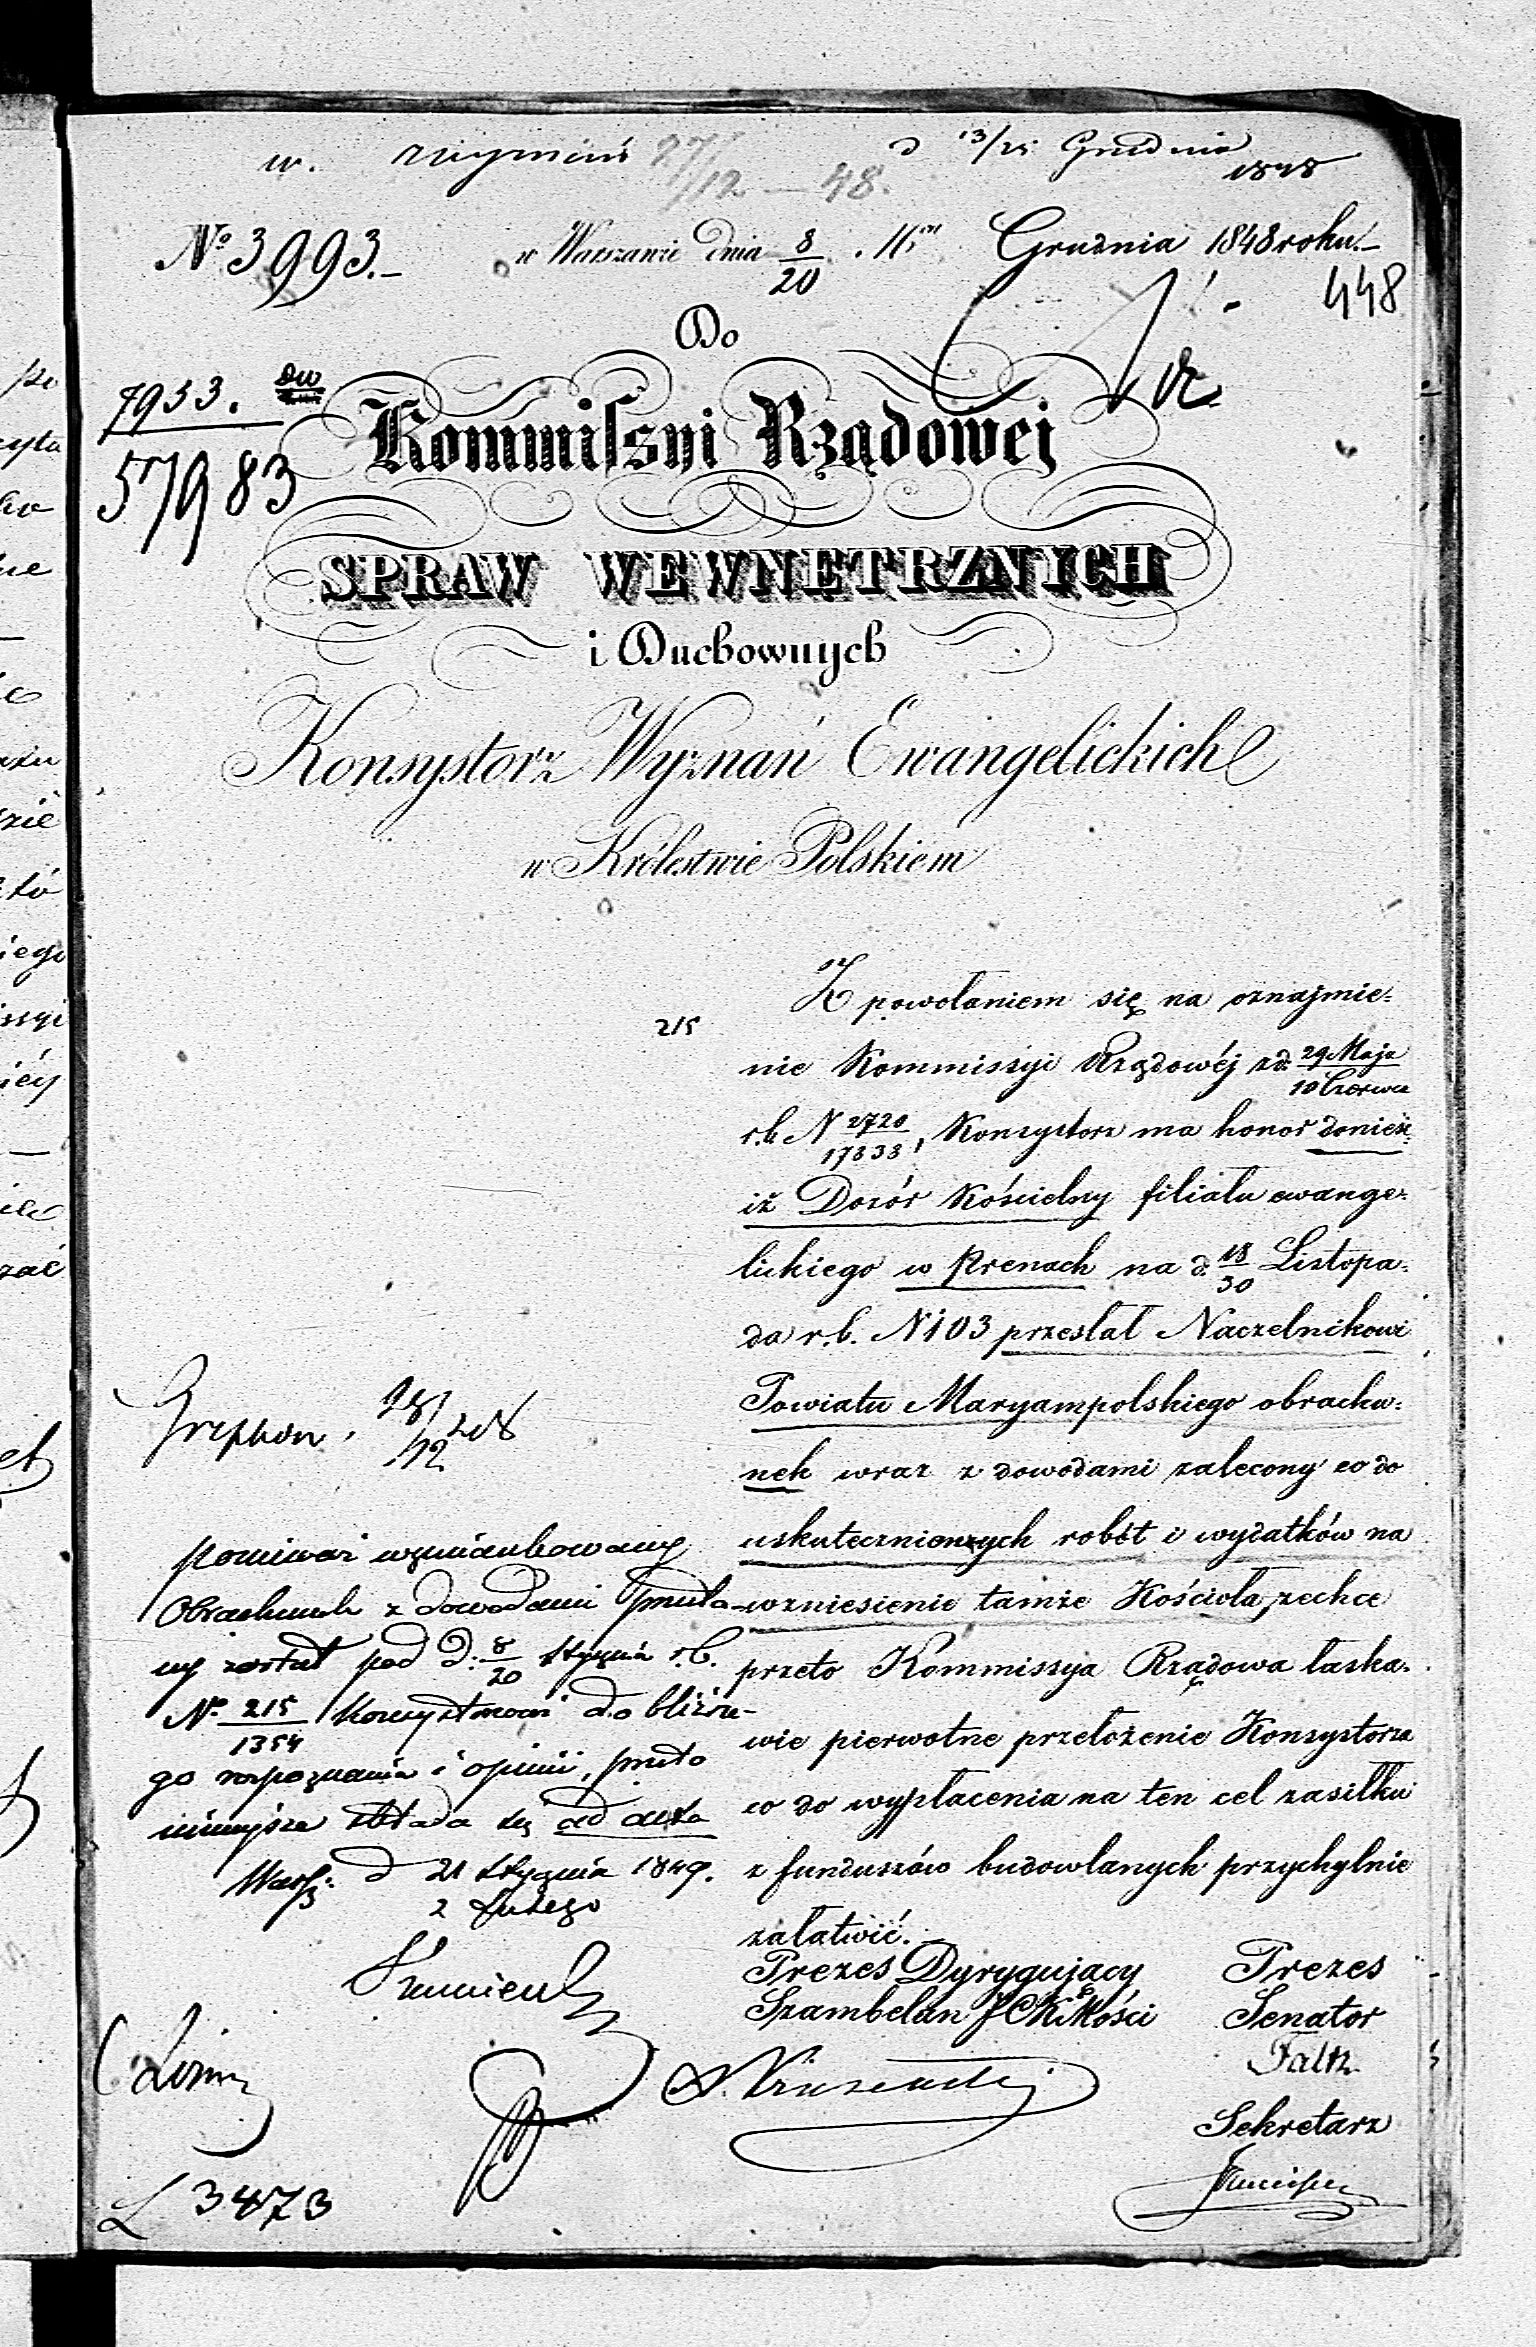 w. 27/12 – 48. d 13/25 Grudnia
1848
No 3993.– w Warszawie dnia 8/20 Grudnia 1848 roku.–
448
Do
7953.
57983
Kommissyi Rządowej
SPRAW WEWNĘTRZNYCH
i Duchownych
Konsystorz Wyznań Ewangelickich
w Królestwie Polskiem
Z powołaniem się na oznajmie-
215
nie Kommissyi Rządowéj z d. 29 Maja/10 Czerwca
r.b. N 2720/17838, Konsystorz ma honor donieść
iż Dozór Kościelny filiału ewange-
lickiego w Prenach na d. 18/30 Listopa-
da r.b. N 103 przesłał Naczelnikowi
Powiatu Maryampolskiego obrachu-
nek wraz z dowodami zalecony co do
uskutecznionych robót i wydatków na
wzniesienie tamże Kościoła, zechce
przeto Kommissyja Rządowa łaska-
wie pierwotne przełożenie Konsystorza
co do wypłacenia na ten cel zasiłku
z funduszów budowlanych przychylnie
załatwić.
Prezes Dyrygujący
Szambelan JCKMości
Prezes
Senator
Faltz
Sekretarz
28/12 48
ponieważ wzmiankowany
Obrachunek z dowodami przesła-
ny został pod d. 8/20 stycznia r.b.
No 215/1354 Konsystorzowi do bliższe-
go rozpoznania i opinii, przeto
niniejsze składa się ad acta
Warsz. d 21 stycznia/2 Lutego 1849.
L 3473